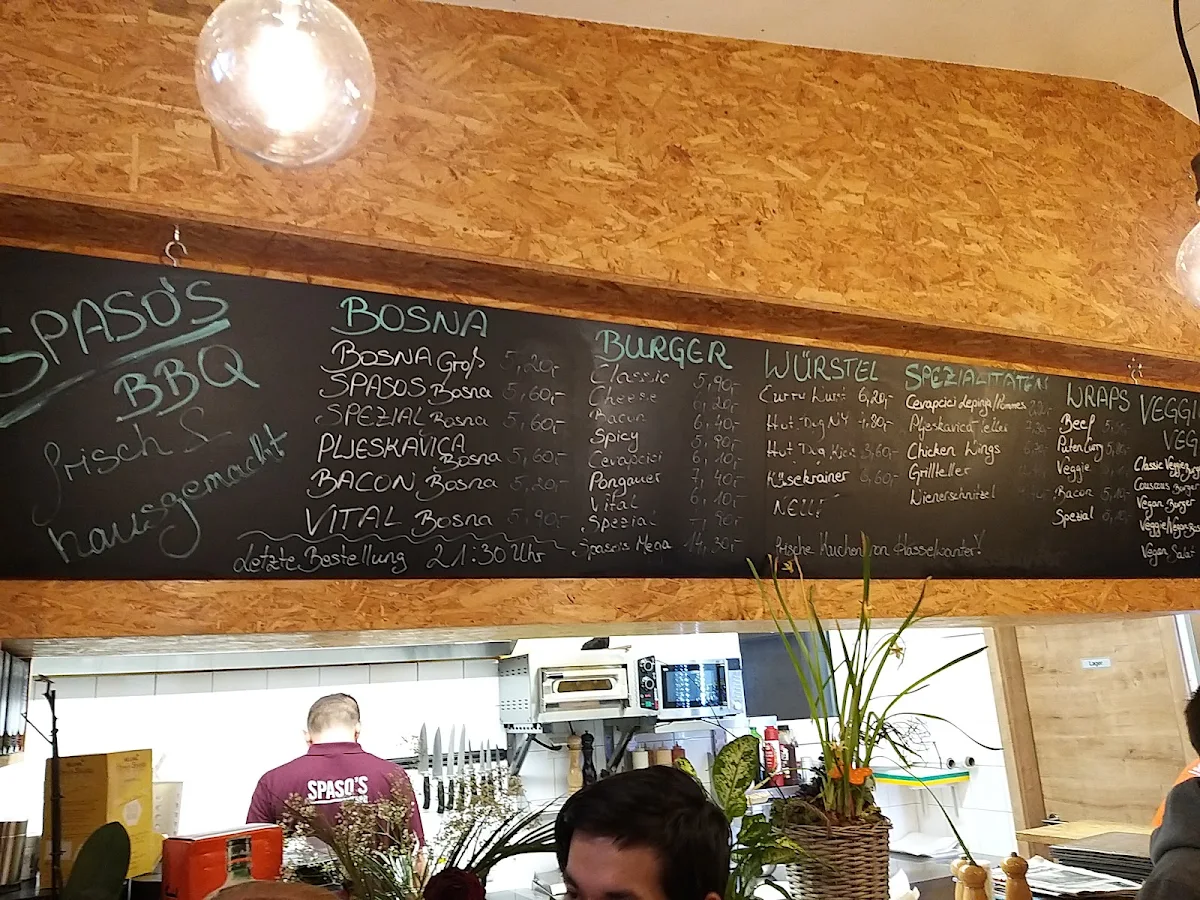 SPASO'S
BBQ
frisch &
hausgemacht
BOSNA
BOSNA Groß 5,20,-
SPASOS Bosna 5,60,-
SPEZIAL Bosna 5,60,-
PLJESKAVICA
Bosna 5,60,-
BACON Bosna 5,20,-
VITAL Bosna 5,90,-
Letzte Bestellung 21:30 Uhr
BURGER
Classic 5,90,-
Cheese 6,20,-
Bacon 6,40,-
Spicy 5,90,-
Cevapcici 6,10,-
Pongauer 7,40,-
Vital 6,10,-
Spezial
Spaso's Menü 14,30,-
WÜRSTEL
Curry Wurst 6,20,-
Hot Dog NY
Hot Dog
Käsekrainer
Frische Kuchen von
SPEZIALITÄTEN
Cevapcici Lepinja/Pommes
Pljeskavica Teller
Chicken Wings
Grillteller
Wienerschnitzel
WRAPS
Beef
Puten Curry
Veggie
Bacon
Spezial
Classic Veggie
Couscous Burger
Vegan Burger
Vegan Salat
SPASO'S
Lager